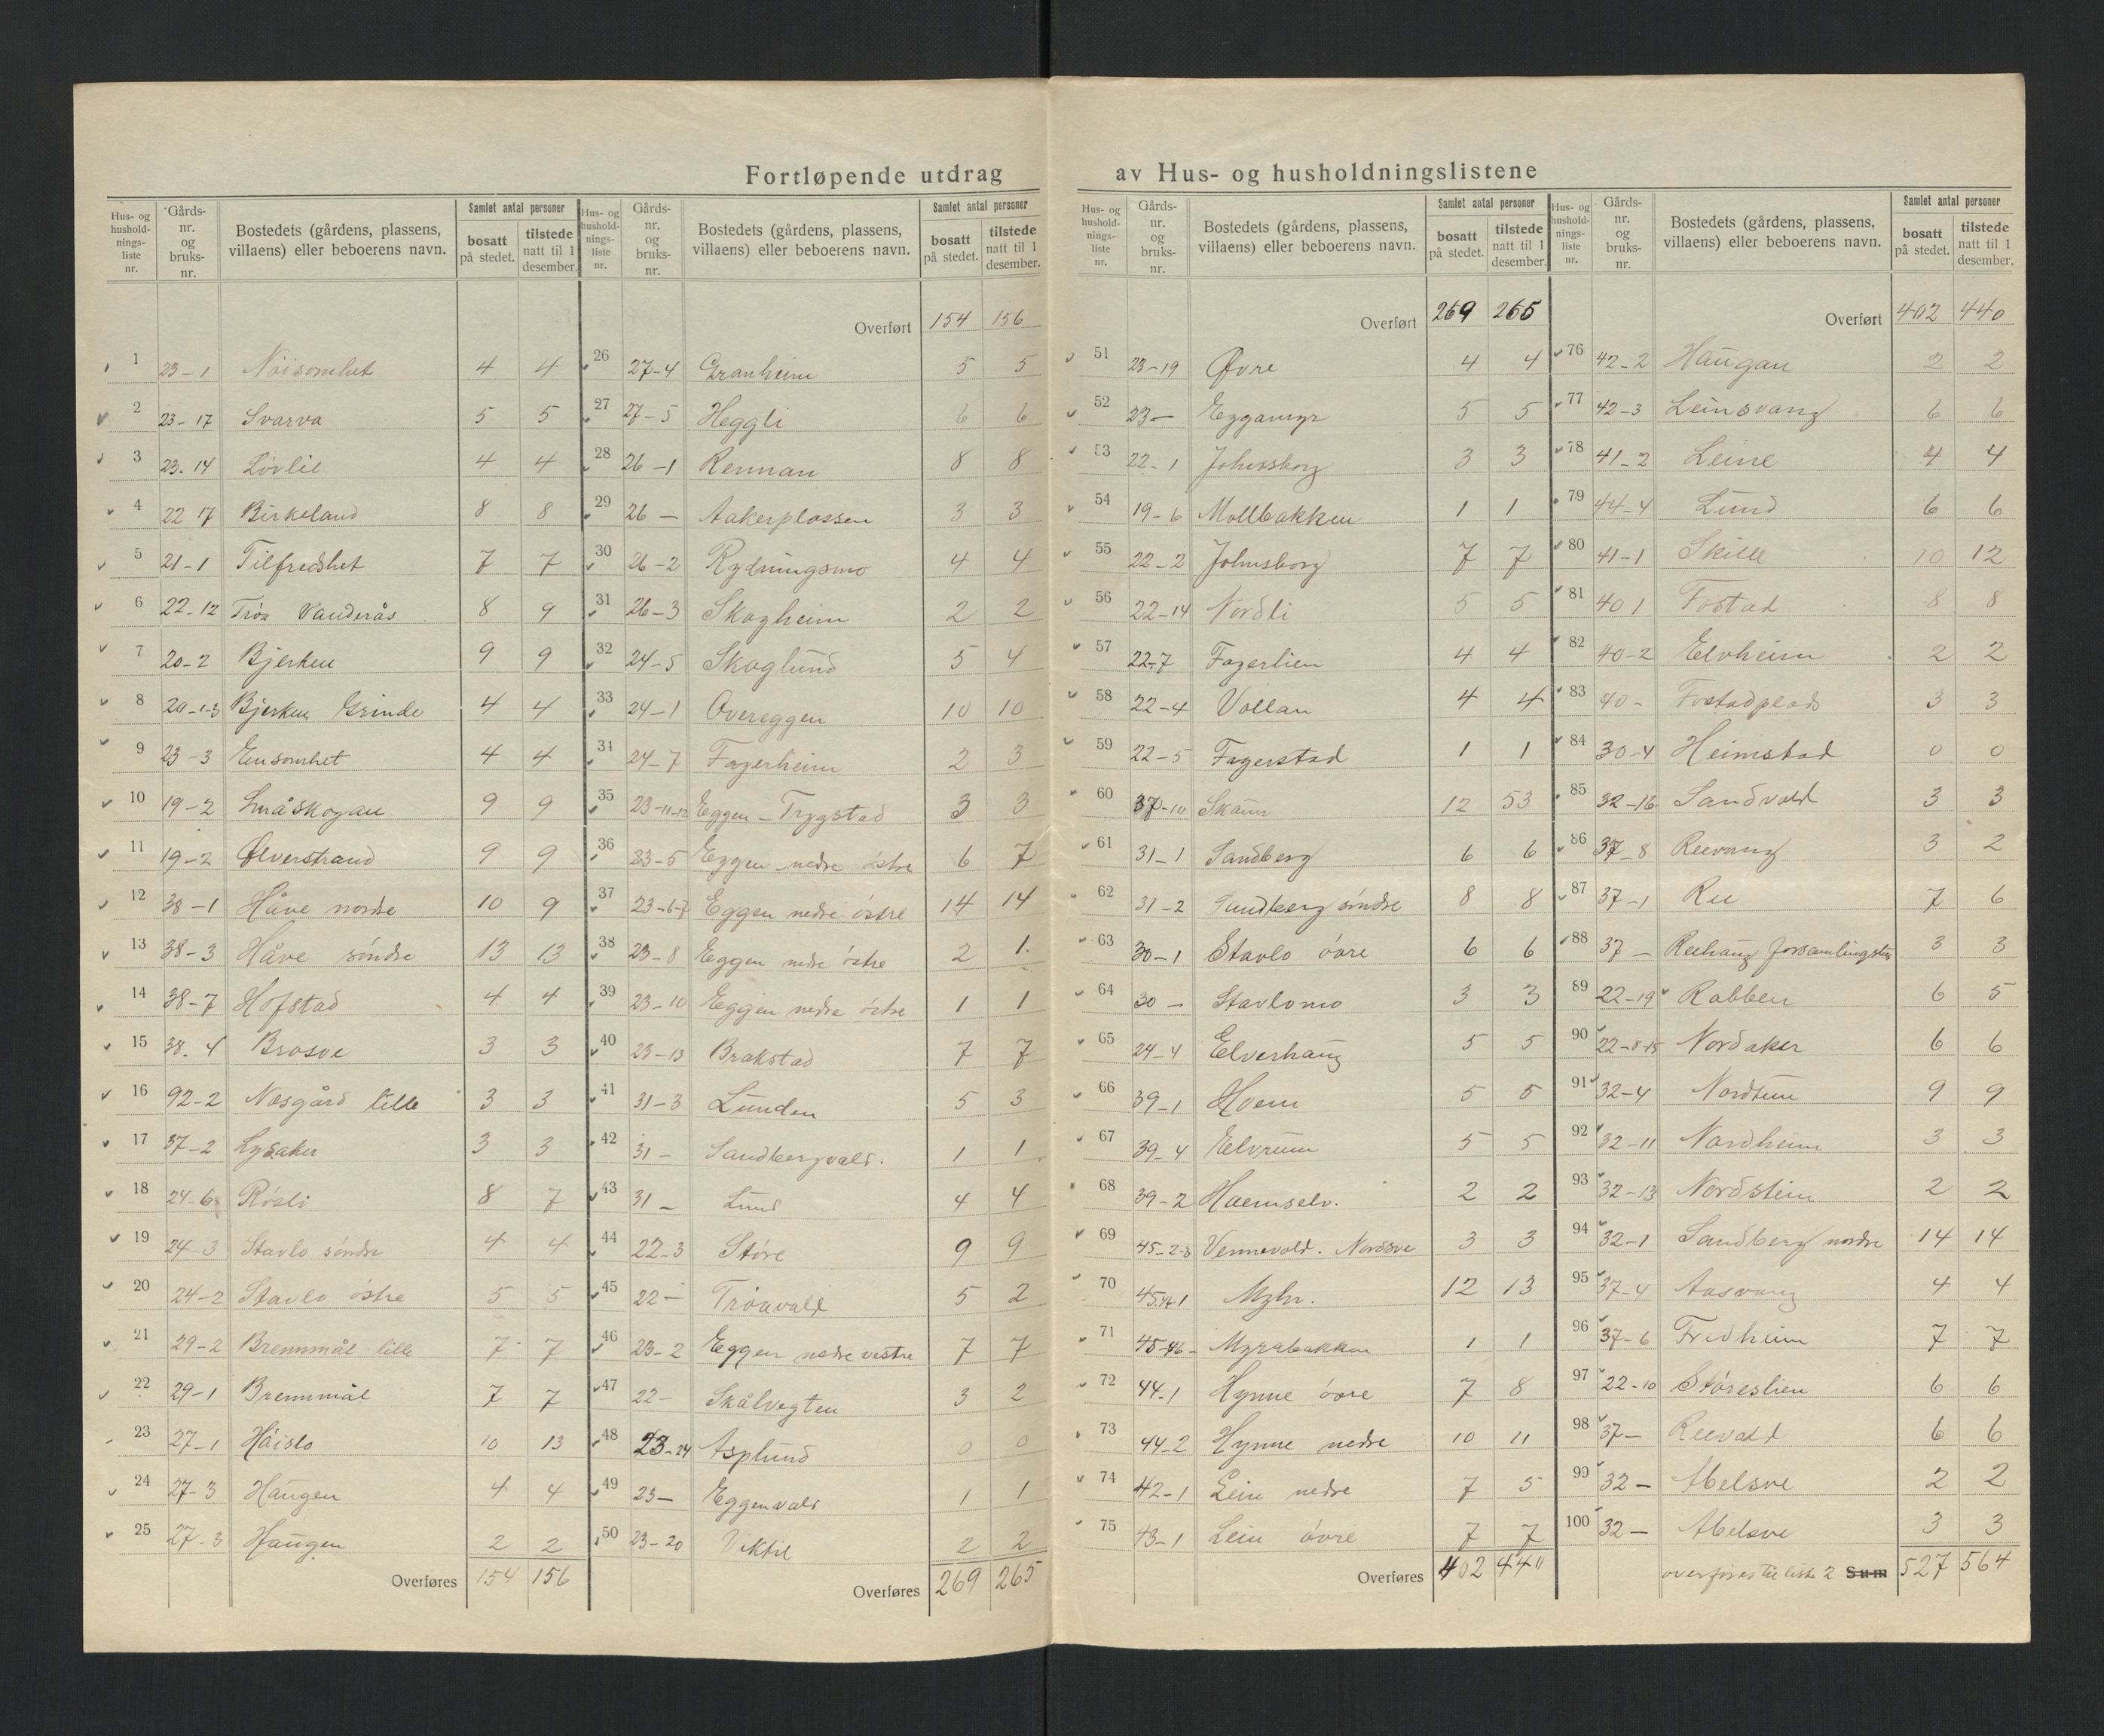 Fortløpende utdrag av Hus- og husholdningslistene
Hus- og hushold-nings-liste nr. Gårds-nr. og bruks-nr. Bostedets (gårdens, plassens, villaens) eller beboerens navn. Samlet antal personer bosatt på stedet. tilstede natt til 1 desember.
1 23-1 Nöisomhet 4 4
2 23-17 Svarva 5 5
3 23.14 Lövlie 4 4
4 22 17 Birkeland 8 8
5 21-1 Tilfredshet 7 7
6 22-12 Tröa Vanderås 8 9
7 20-2 Bjerken 9 9
8 20-1-3 Bjerken Grinde 4 4
9 23-3 Ensomhet 4 4
10 19-2 Småskogan 9 9
11 19-2 Ølverstrand 9 9
12 38-1 Håve nordre 10 9
13 38-3 Håve söndre 13 13
14 38-7 Hofstad 4 4
15 38.4 Brosve 3 3
16 92-2 Nesgård lille 3 3
17 37-2 Lysaker 3 3
18 24-6 Rösli 8 7
19 24-3 Stavlo söndre 4 4
20 24-2 Stavlo östre 5 5
21 29-2 Brennmål lille 7 7
22 29-1 Brennmål 7 7
23 27-1 Håislo 10 13
24 27-3 Haugen 4 4
25 27-3 Haugen 2 2
Overføres 154 156
Hus- og hushold-nings-liste nr. Gårds-nr. og bruks-nr. Bostedets (gårdens, plassens, villaens) eller beboerens navn. Samlet antal personer bosatt på stedet. tilstede natt til 1 desember.
Overført 154 156
26 27-4 Granheim 5 5
27 27-5 Heggli 6 6
28 26-1 Rennan 8 8
29 26 — Aakerplassen 3 3
30 26-2 Rydningsmo 4 4
31 26-3 Skogheim 2 2
32 24-5 Skoglund 5 4
33 24-1 Overeggen 10 10
34 24-7 Fagerheim 2 3
35 23-11-12 Eggen - Trygstad 3 3
36 23-5 Eggen nedre östre 6 7
37 23-6-7 Eggen nedre östre 14 14
38 23-8 Eggen nedre östre 2 1
39 23-10 Eggen nedre östre 1 1
40 23-13 Brakstad 7 7
41 31-3 Lunden 5 3
42 31 - Sandbergvald. 1 1
43 31 - Lund 4 4
44 22-3 Störe 9 9
45 22 - Tröavald 5 2
46 23-2 Eggen nedre vestre 7 7
47 22- Skålvegten 3 2
48 23-24 Asplund 0 0
49 23— Eggenvald 1 1
50 23-20 Viktil 2 2
Overføres 269 265
Hus- og hushold-nings-liste nr. Gårds-nr. og bruks-nr. Bostedets (gårdens, plassens, villaens) eller beboerens navn. Samlet antal personer bosatt på stedet. tilstede natt til 1 desember.
Overført 269 265
51 23-19 Øvre 4 4
52 23— Eggamyr 5 5
53 22-1 Johnsborg 3 3
54 19-6 Mollbakken 1 1
55 22-2 Johnsborg 7 7
56 22-14 Nordli 5 5
57 22-7 Fagerlien 4 4
58 22-4 Vollan 4 4
59 22-5 Fagerstad 1 1
60 Skaun 12 53
61 31-1 Sandberg 6 6
62 31-2 Sandberg söndre 8 8
63 30-1 Stavlo övre 6 6
64 30 - Stavlomo 3 3
65 24-4 Elverhaug 5 5
66 39-1 Hoem 5 5
67 39-4 Elvrum 5 5
68 39-2 Hoemselv. 2 2
69 45-2-3 Vennevold. Nordsve 3 3
70 Myhr. 12 13
71 45-46- Myrabakken 1 1
72 44-1 Hynne övre 7 8
73 44-2 Hynne nedre 10 11
74 42-1 Lein nedre 7 5
75 43-1 Lein övre 7 7
Overføres 402 440
Hus- og hushold-nings-liste nr. Gårds-nr. og bruks-nr. Bostedets (gårdens, plassens, villaens) eller beboerens navn. Samlet antal personer bosatt på stedet. tilstede natt til 1 desember.
Overført 402 440
76 42-2 Haugan 2 2
77 42-3 Leinsvang 6 6
78 41-2 Leine 4 4
79 44-4 Lund 6 6
80 41-1 Skille 10 12
81 40 1 Fostad 8 8
82 40-2 Elvheim 2 2
83 40- Fostadplads 3 3
84 30-4 Heimstad 0 0
85 32-16 Sandvold 3 3
86 37-8 Reevang 3 2
87 37-1 Ree 7 6
88 37 — Reehaug forsamlingshus 3 3
89 22-19 Rabben 6 5
90 22-8-15 Nordaker 6 6
91 32-4 Nordtun 9 9
92 32-11 Nordheim 3 3
93 32-13 Nordstein 2 2
94 32-1 Sandberg nordre 14 14
95 37-4 Aasvang 4 4
96 37-6 Fredheim 7 7
97 22-10 Störeslien 6 6
98 37— Reevald 6 6
99 32 — Abelsve 2 2
100 32 — Abelsve 3 3
overføres til liste 2 Sum 527 564